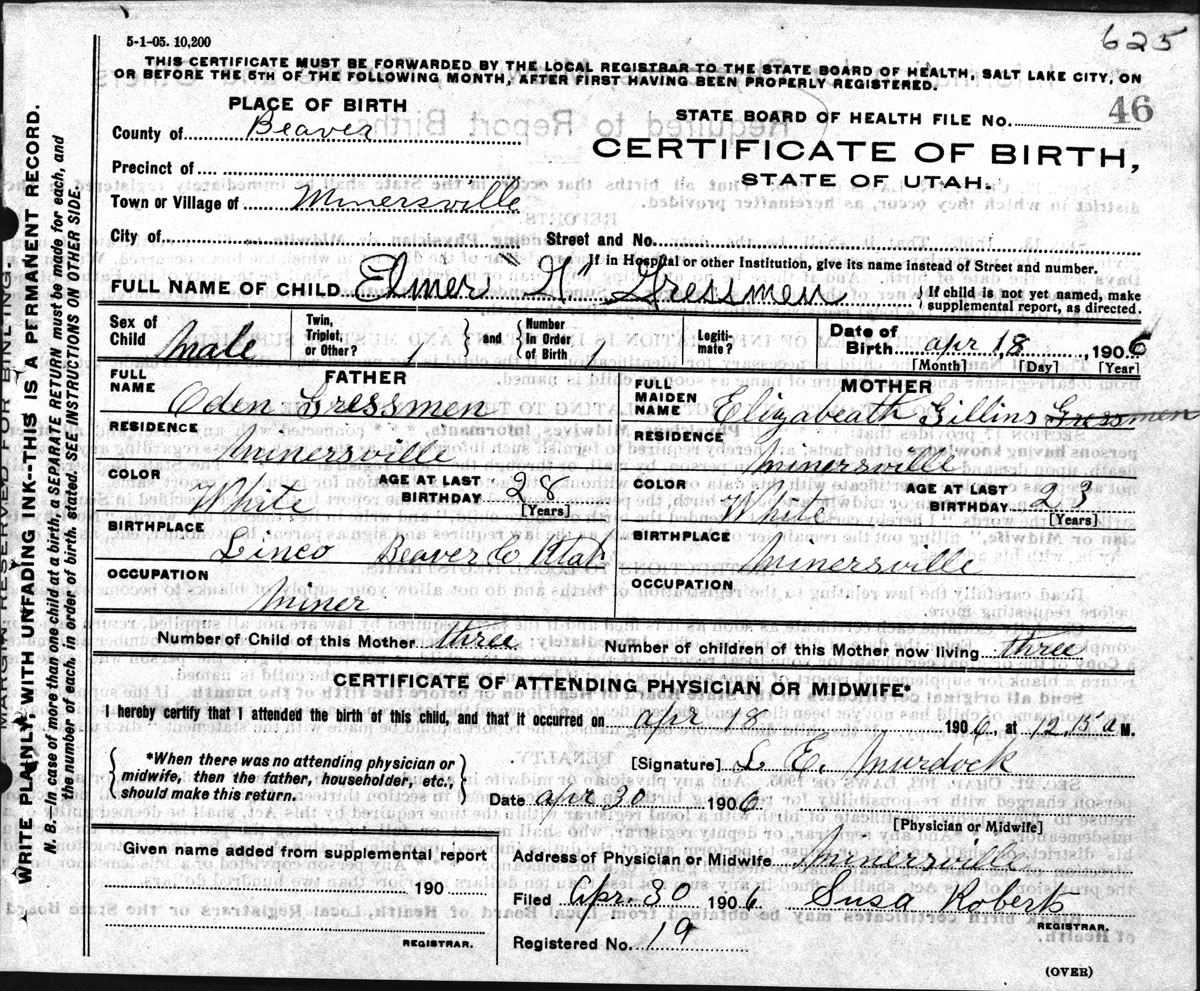 625
5-1-05. 10,200
THIS CERTIFICATE MUST BE FORWARDED BY THE LOCAL REGISTRAR TO THE STATE BOARD OF HEALTH, SALT LAKE CITY, ON
OR BEFORE THE 5TH OF THE FOLLOWING MONTH, AFTER FIRST HAVING BEEN PROPERLY REGISTERED.
PLACE OF BIRTH
STATE BOARD OF HEALTH FILE NO. 46
County of Beaver
CERTIFICATE OF BIRTH,
STATE OF UTAH.
Precinct of
Town or Village of Minersville
City of Street and No.
If in Hospital or other Institution, give its name instead of Street and number.
FULL NAME OF CHILD Elmer "H" Gressmen { If child is not yet named, make supplemental report, as directed.
Sex of Child Male Twin, Triplet, or Other? 1 } and { Number In Order of Birth 1 Legiti-mate? Date of Birth apr 18, 1906
[Month] [Day] [Year]
FATHER
FULL NAME Oden Gressmen
RESIDENCE Minersville
COLOR White AGE AT LAST BIRTHDAY 28 [Years]
BIRTHPLACE Beaver Co Utah
OCCUPATION Miner
MOTHER
FULL MAIDEN NAME Elizabeath Gillins Gressmen
RESIDENCE Minersville
COLOR White AGE AT LAST BIRTHDAY 23 [Years]
BIRTHPLACE Minersville
OCCUPATION
Number of Child of this Mother three Number of children of this Mother now living three
CERTIFICATE OF ATTENDING PHYSICIAN OR MIDWIFE*
I hereby certify that I attended the birth of this child, and that it occurred on apr 18 1906, at 12,15 a M.
{ *When there was no attending physician or midwife, then the father, householder, etc., should make this return. }
[Signature] L. E. Murdock
Date apr 30 1906.
[Physician or Midwife]
Given name added from supplemental report
190
REGISTRAR.
Address of Physician or Midwife Minersville
Filed apr. 30 1906. Susa Roberts
REGISTRAR.
Registered No. 19
(OVER)
MARGIN RESERVED FOR BINDING.
WRITE PLAINLY, WITH UNFADING INK--THIS IS A PERMANENT RECORD.
N. B.—In case of more than one child at a birth, a SEPARATE RETURN must be made for each, and
the number of each, in order of birth, stated. SEE INSTRUCTIONS ON OTHER SIDE.